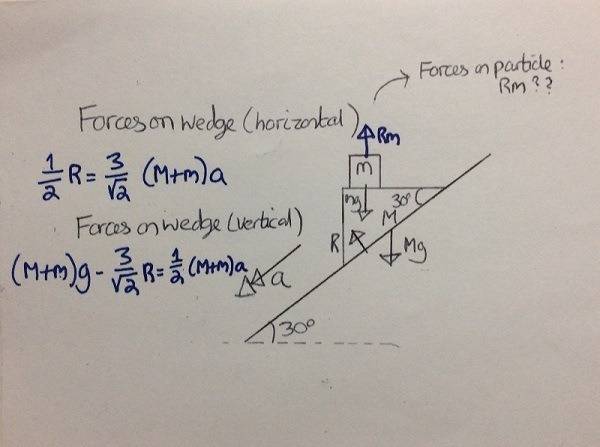 Forces on particle :
Rm ??
Forces on wedge (horizontal)
Rm
m
1/2 R = 3/√2 (M+m)a
mg
30°
M
Forces on wedge (vertical)
R
Mg
(M+m)g - 3/√2 R = 1/2 (M+m)a
a
30°